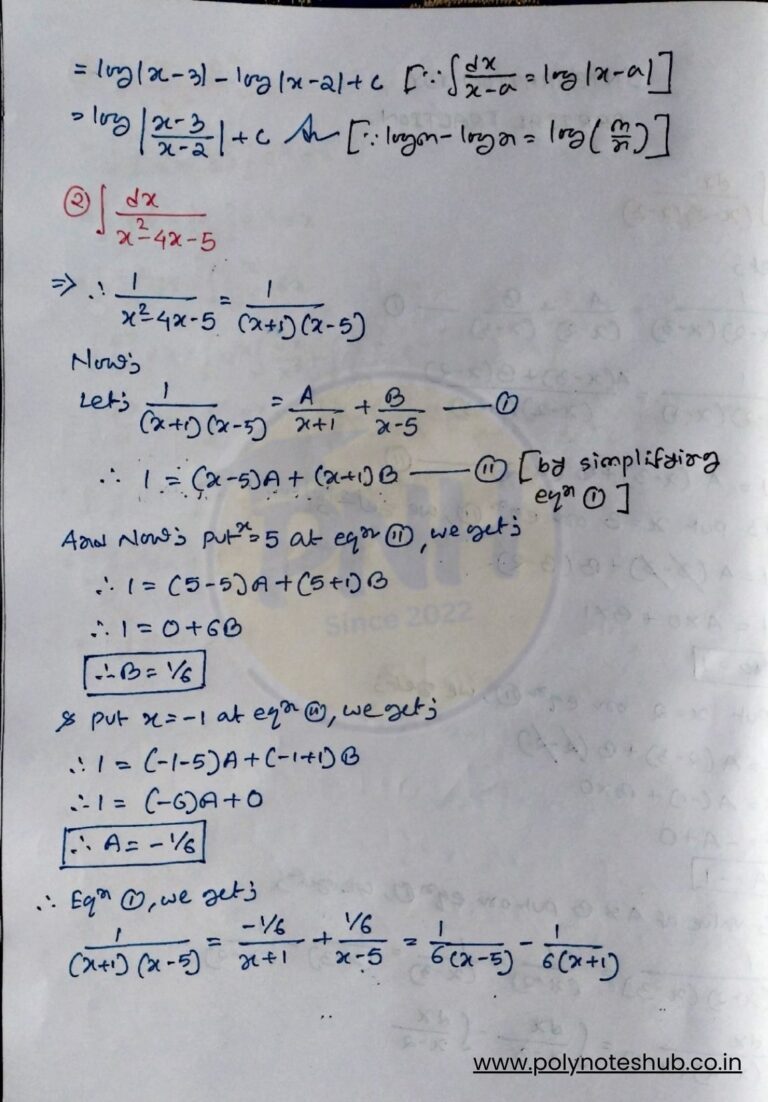 = log|x-3| - log|x-2| + c [∵ ∫ dx/(x-a) = log|x-a|]
= log |(x-3)/(x-2)| + c [∵ logm - logn = log(m/n)]
② ∫ dx/(x²-4x-5)
⇒ ∴ 1/(x²-4x-5) = 1/((x+1)(x-5))
Now;
Let; 1/((x+1)(x-5)) = A/(x+1) + B/(x-5) — ①
∴ 1 = (x-5)A + (x+1)B — ⑪ [by simplifying
eqⁿ ①]
Now; put x = 5 at eqⁿ ⑪, we get;
∴ 1 = (5-5)A + (5+1)B
∴ 1 = 0 + 6B
∴ B = 1/6
& put x = -1 at eqⁿ ⑪, we get;
∴ 1 = (-1-5)A + (-1+1)B
∴ 1 = (-6)A + 0
∴ A = -1/6
∴ Eqⁿ ①, we get;
1/((x+1)(x-5)) = (-1/6)/(x+1) + (1/6)/(x-5) = 1/(6(x-5)) - 1/(6(x+1))
PNH
Since 2022
www.polynoteshub.co.in